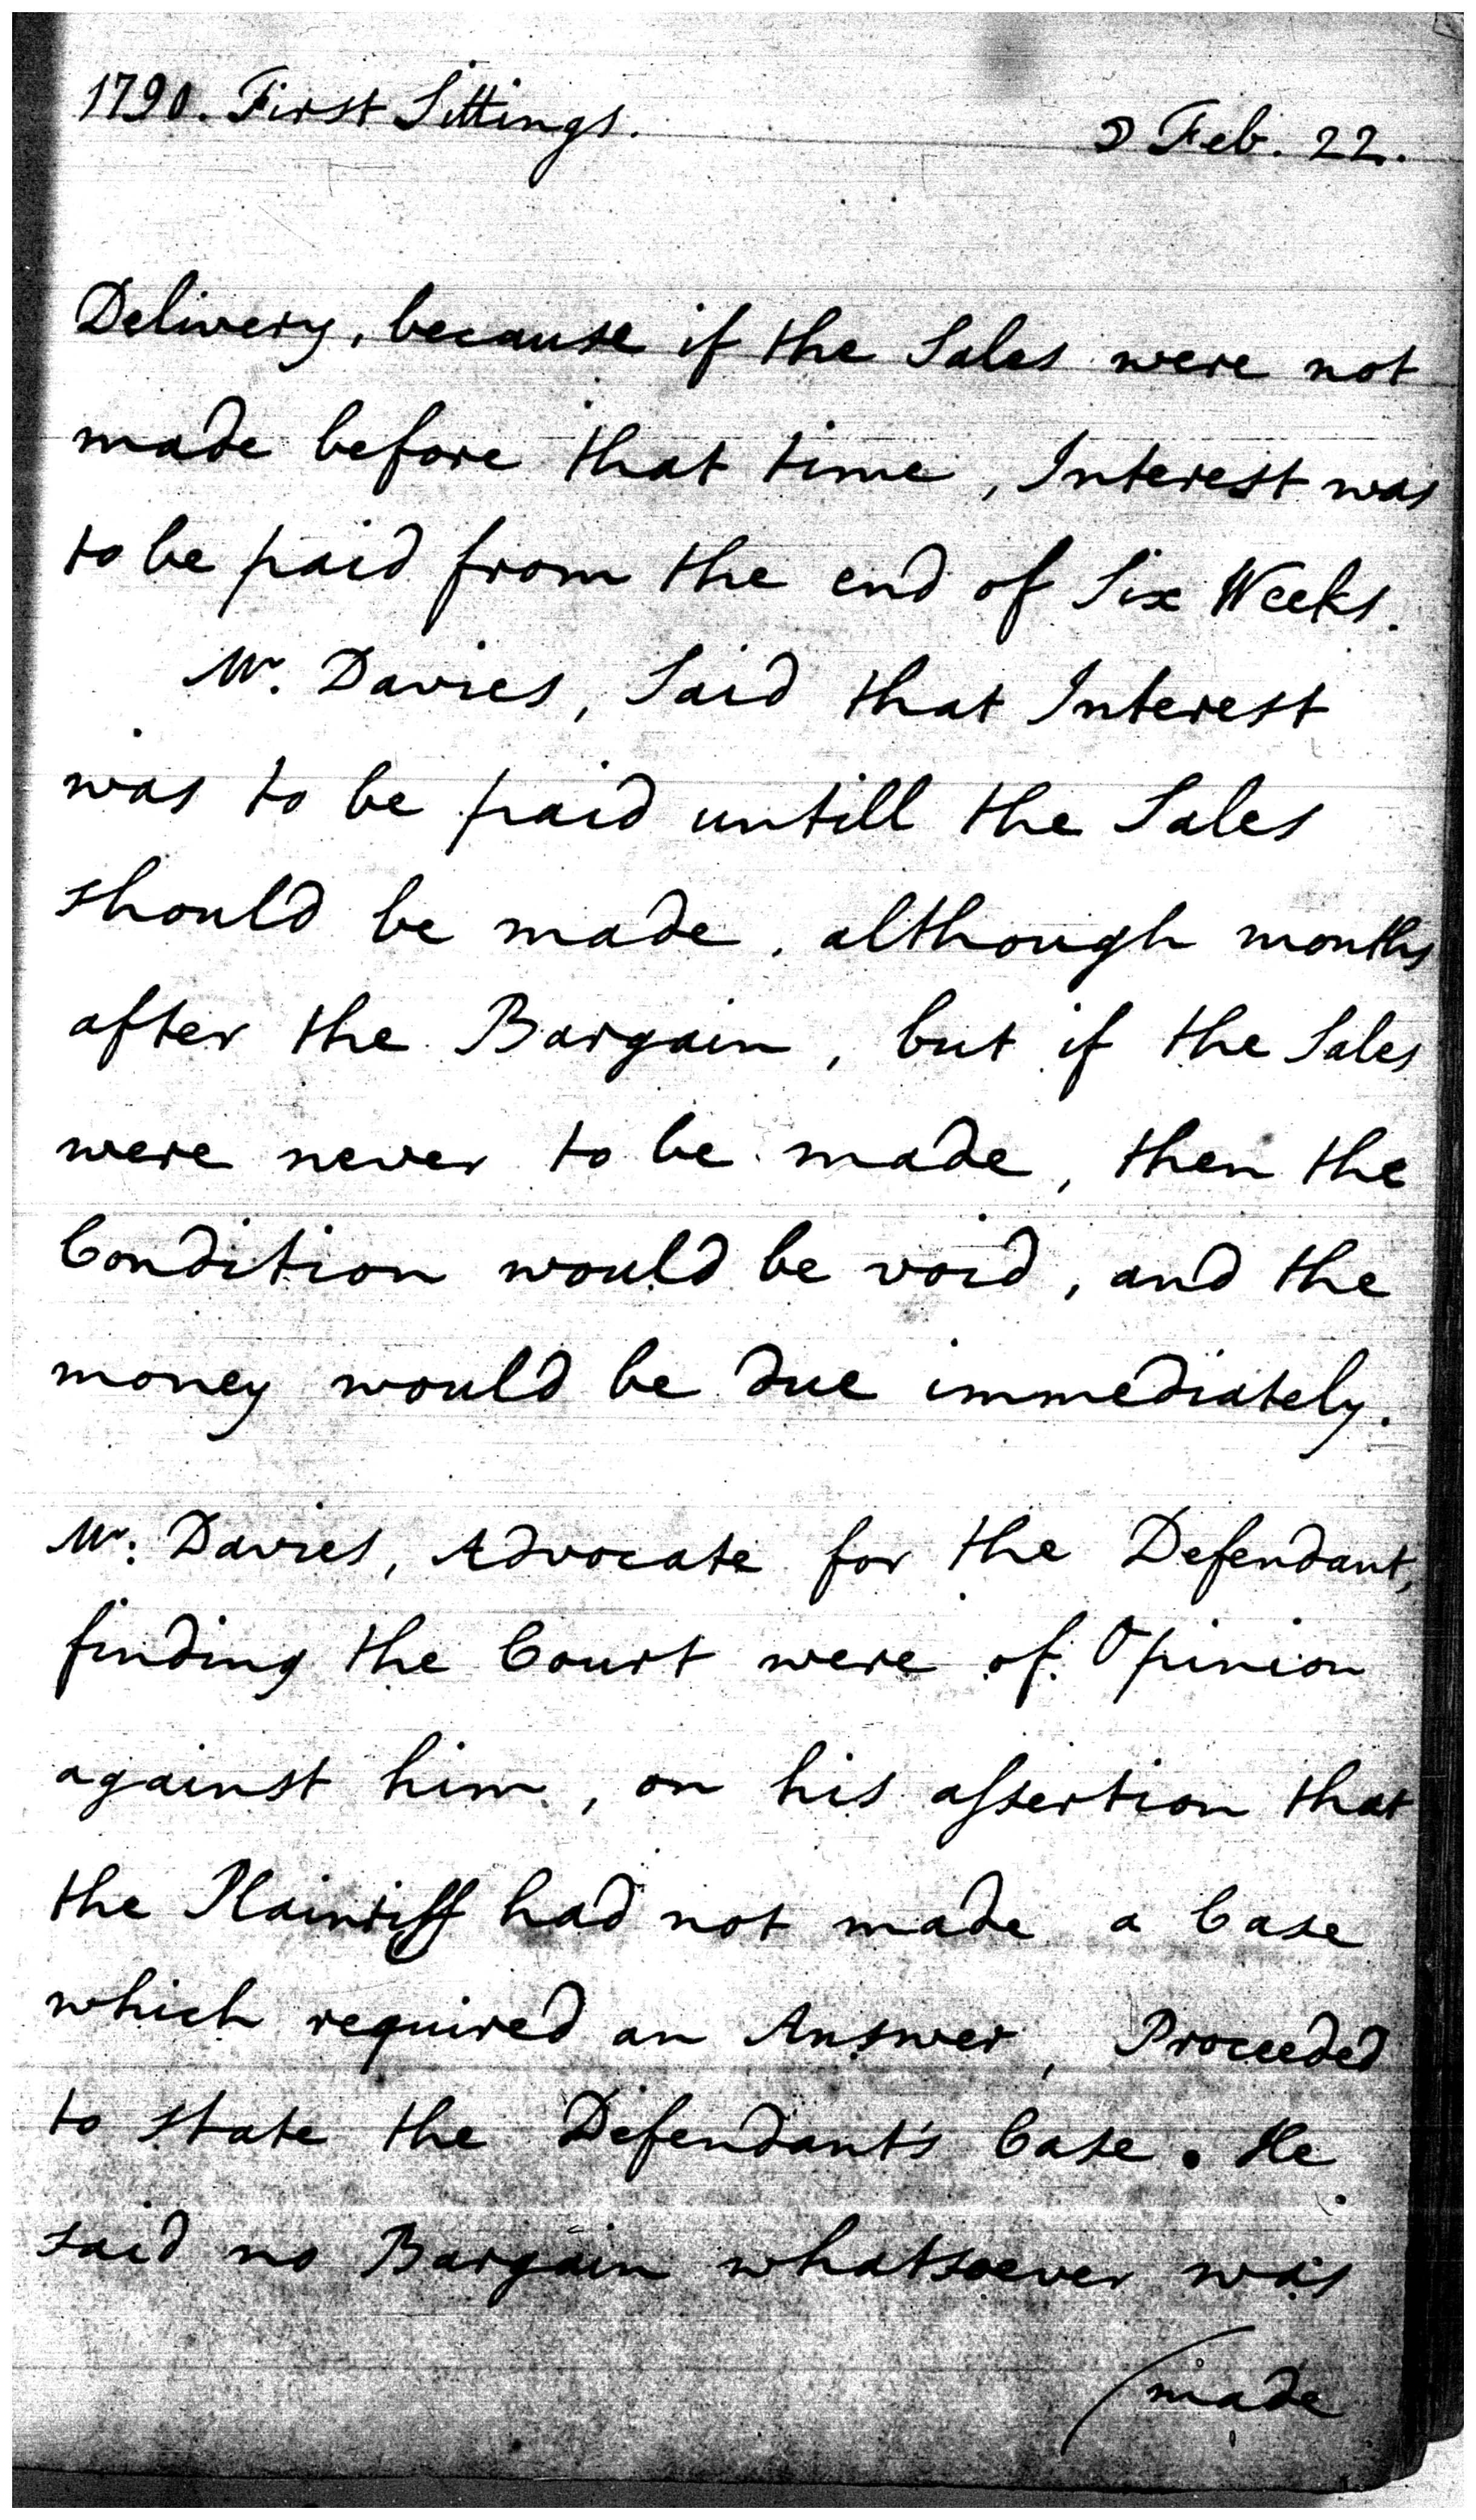 1790. First Sittings.
☽ Feb. 22.
Delivery, because if the Sales were not
made before that time, Interest was
to be paid from the end of Six Weeks.
Mr. Davies, Said that Interest
was to be paid untill the Sales
should be made, although months
after the Bargain, but if the Sales
were never to be made, then the
Condition would be void, and the
money would be due immediately.
Mr. Davies, Advocate for the Defendant,
finding the Court were of Opinion
against him, on his aſsertion that
the Plaintiff had not made a Case
which required an Answer, Proceeded
to state the Defendant's Case. He
said no Bargain whatsoever was
(made